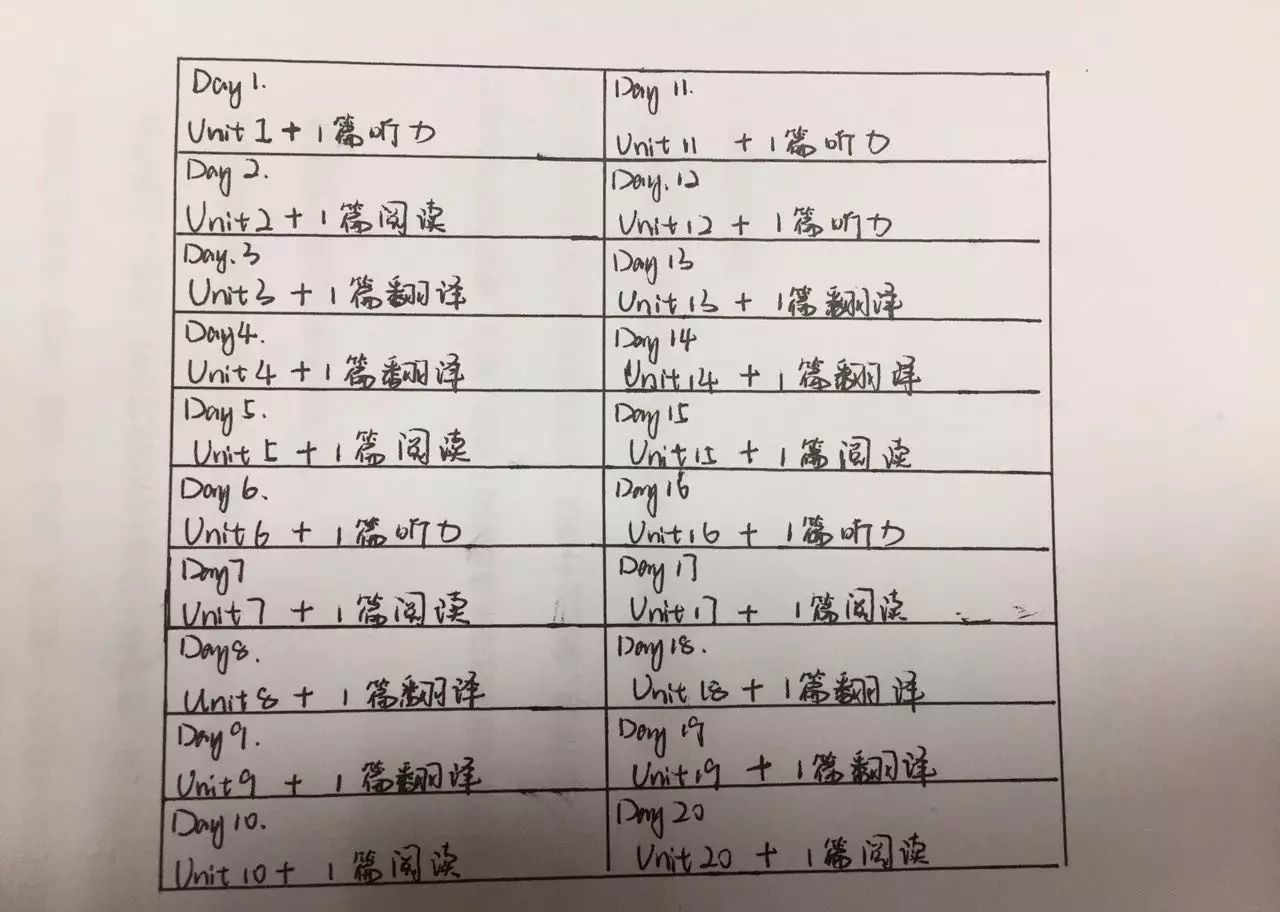 Day 1.
Unit 1 + 1篇听力
Day 2.
Unit 2 + 1篇阅读
Day.3
Unit 3 + 1篇翻译
Day 4.
Unit 4 + 1篇翻译
Day 5.
Unit 5 + 1篇阅读
Day 6.
Unit 6 + 1篇听力
Day 7
Unit 7 + 1篇阅读
Day 8.
Unit 8 + 1篇翻译
Day 9.
Unit 9 + 1篇翻译
Day 10.
Unit 10 + 1篇阅读
Day 11.
Unit 11 + 1篇听力
Day.12
Unit 12 + 1篇听力
Day 13
Unit 13 + 1篇翻译
Day 14
Unit 14 + 1篇翻译
Day 15
Unit 15 + 1篇阅读
Day 16
Unit 16 + 1篇听力
Day 17
Unit 17 + 1篇阅读
Day 18.
Unit 18 + 1篇翻译
Day 19
Unit 19 + 1篇翻译
Day 20
Unit 20 + 1篇阅读